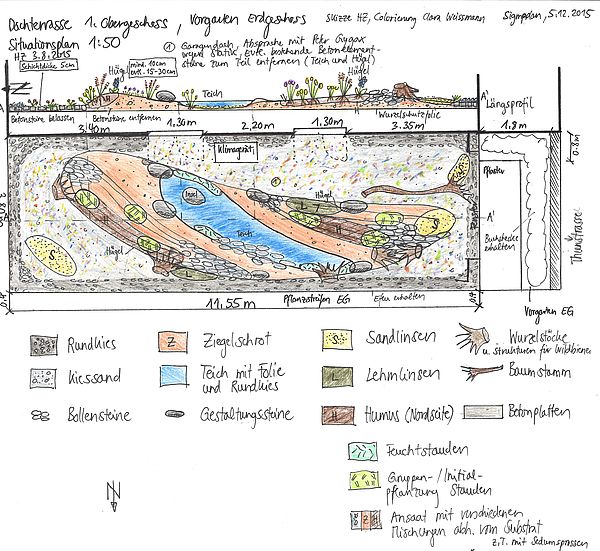 Dachterrasse 1. Obergeschoss, Vorgarten Erdgeschoss Skizze HZ, Colorierung Clara Weissmann Signuplan, 5.12.2015
Situationsplan 1:50
HZ 3.8.2015
① Garagendach, Absprache mit Peter Gygax
wegen Statik, Evtl. bestehende Betonelement-
steine zum Teil entfernen (Teich und Hügel)
Schichtdicke 5cm
Hügel
mind. 10cm
evt. 15-30cm
Hügel
N
H
Teich
A'
Längsprofil
Betonsteine belassen
Betonsteine entfernen
Wurzelschutzfolie
3.40m 1.30m 2.20m 1.30m 3.35m 1.8m
Klimagerät
0.8m
Insel
Hügel
Pflaster
S
L
H
Teich
S
A'
Buchshecke
erhalten
Thunstrasse
Hügel
S
0.4
0.4
11.55m
Pflanzstreifen EG
Efeu erhalten
Vorgarten EG
Rundkies
Z Ziegelschrot
S Sandlinsen
Wurzelstöcke
u. Strukturen für Wildbienen
Kiessand
Teich mit Folie
und Rundkies
L Lehmlinsen
Baumstamm
Bollensteine
Gestaltungssteine
H Humus (Nordseite)
Betonplatten
Feuchtstauden
Gruppen-/Initial-
pflanzung Stauden
Z Ansaat mit verschiedenen
Mischungen abh. vom Substrat
z.T. mit Sedumsprossen
N